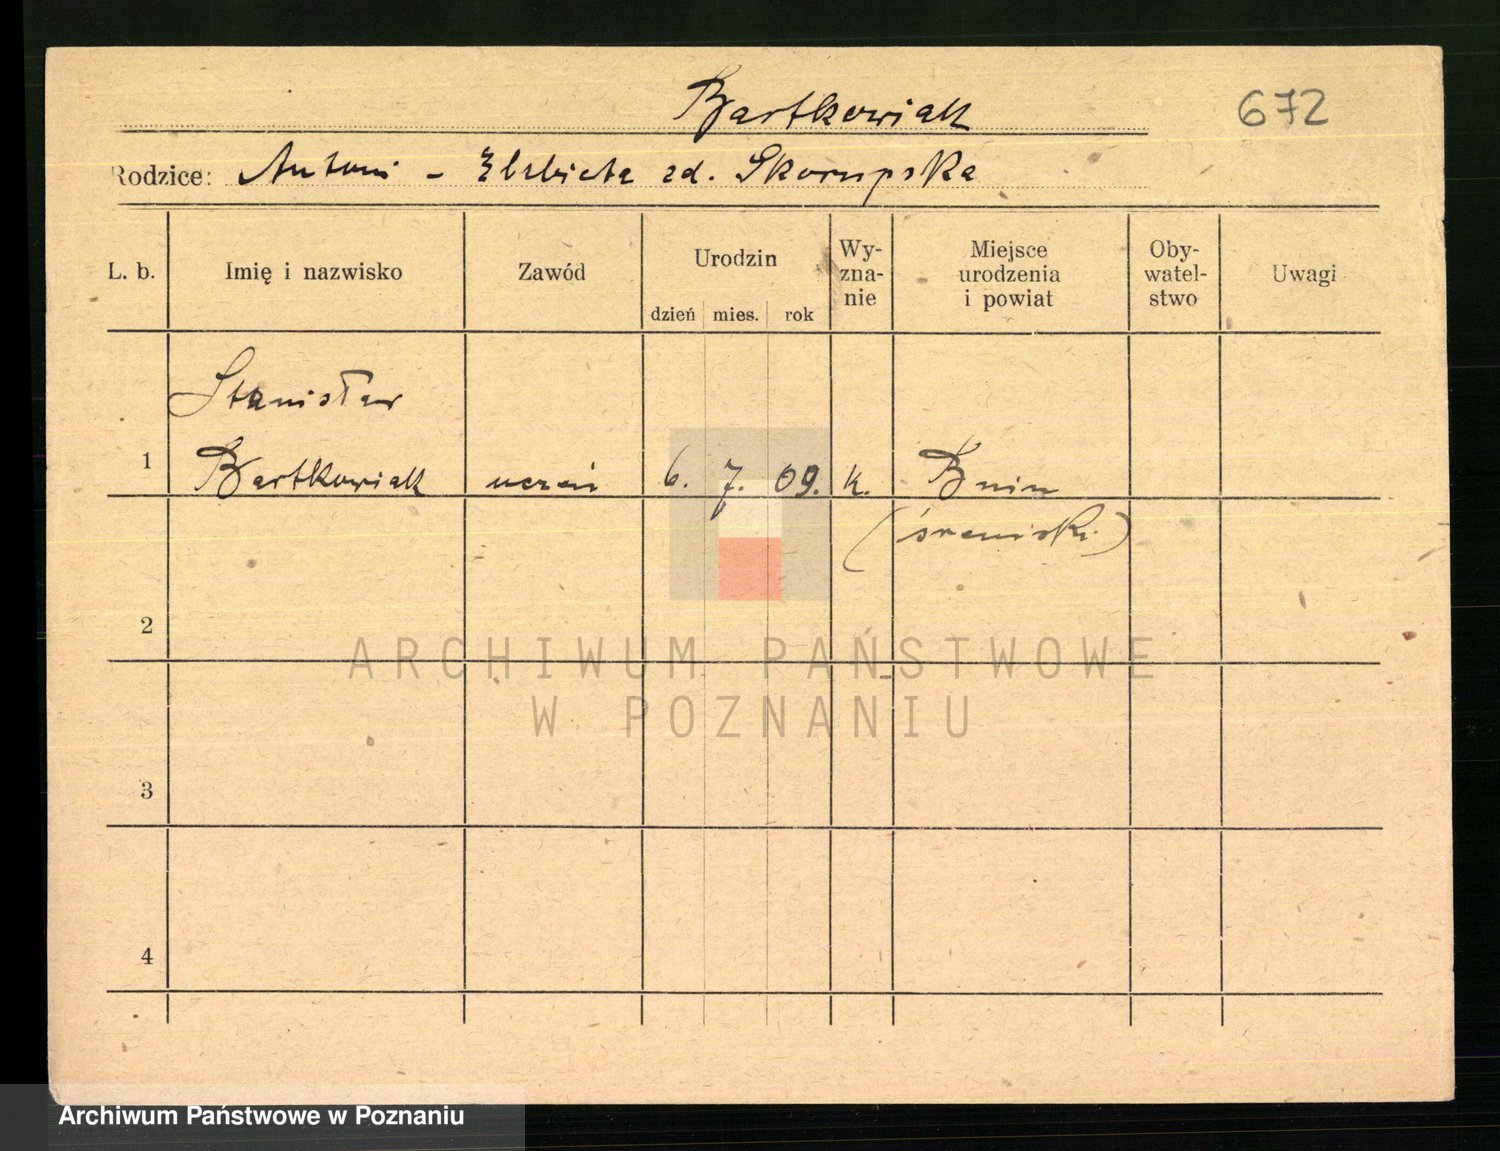 Bartkowiak
672
Rodzice: Antoni - Elżbieta zd. Skorupska
L. b. Imię i nazwisko Zawód Urodzin Wy- Miejsce Oby- Uwagi
zna- urodzenia watel-
nie i powiat stwo
dzień mies. rok
Stanisław
1 Bartkowiak uczeń 6. 7. 09. k. Bnin
(śremski)
2
ARCHIWUM PAŃSTWOWE
W POZNANIU
3
4
Archiwum Państwowe w Poznaniu